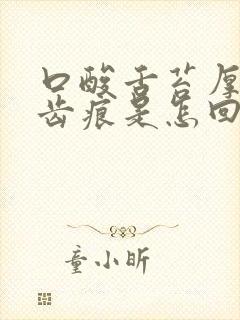 口酸舌苔厚
齿痕是怎回
童小昕